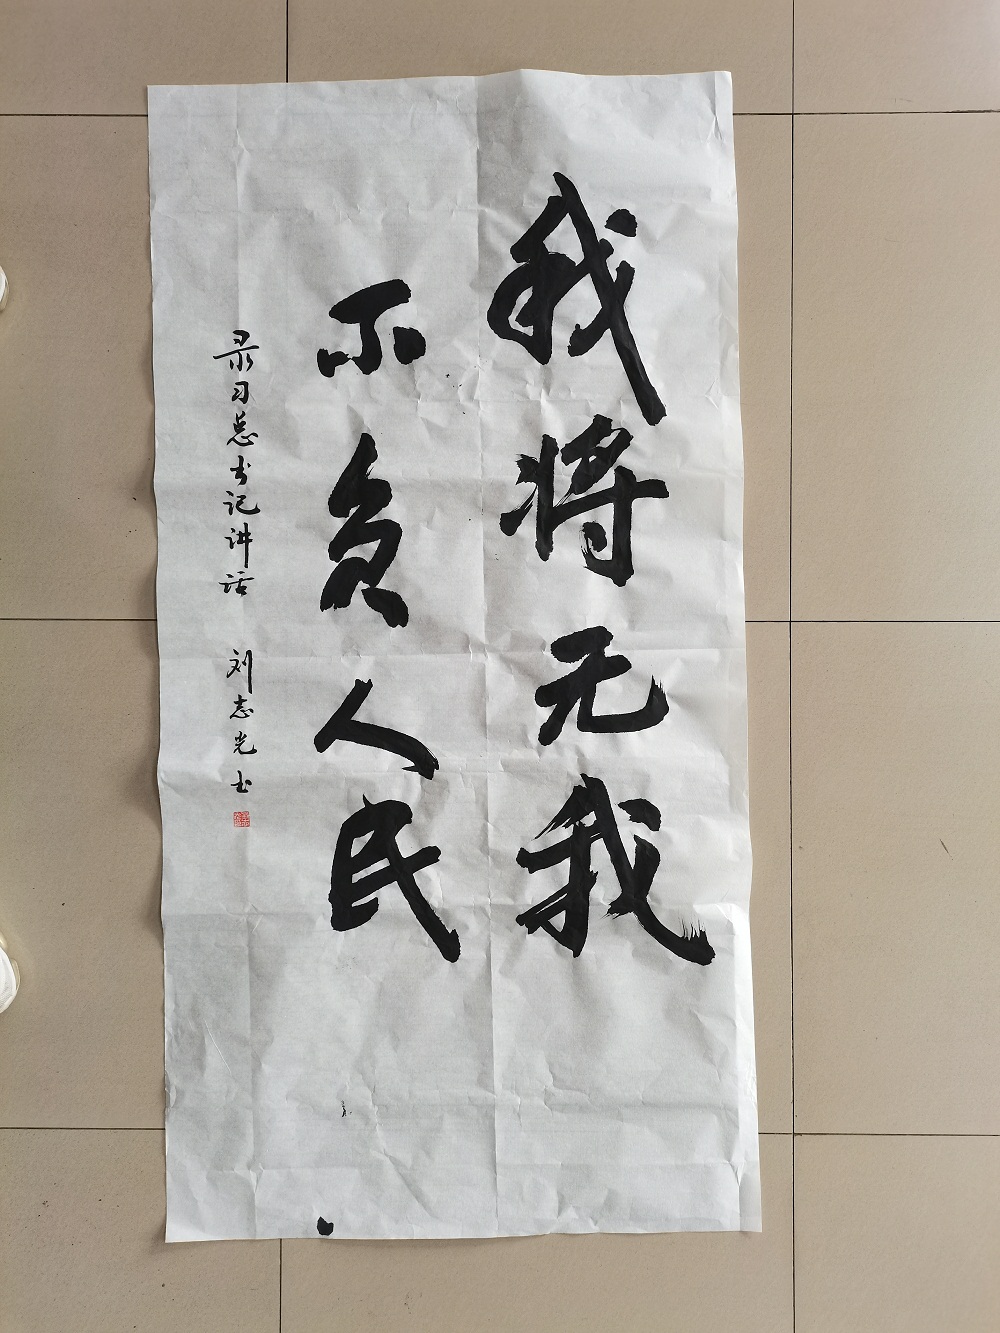 我将无我
不负人民
录习总书记讲话 刘志光书